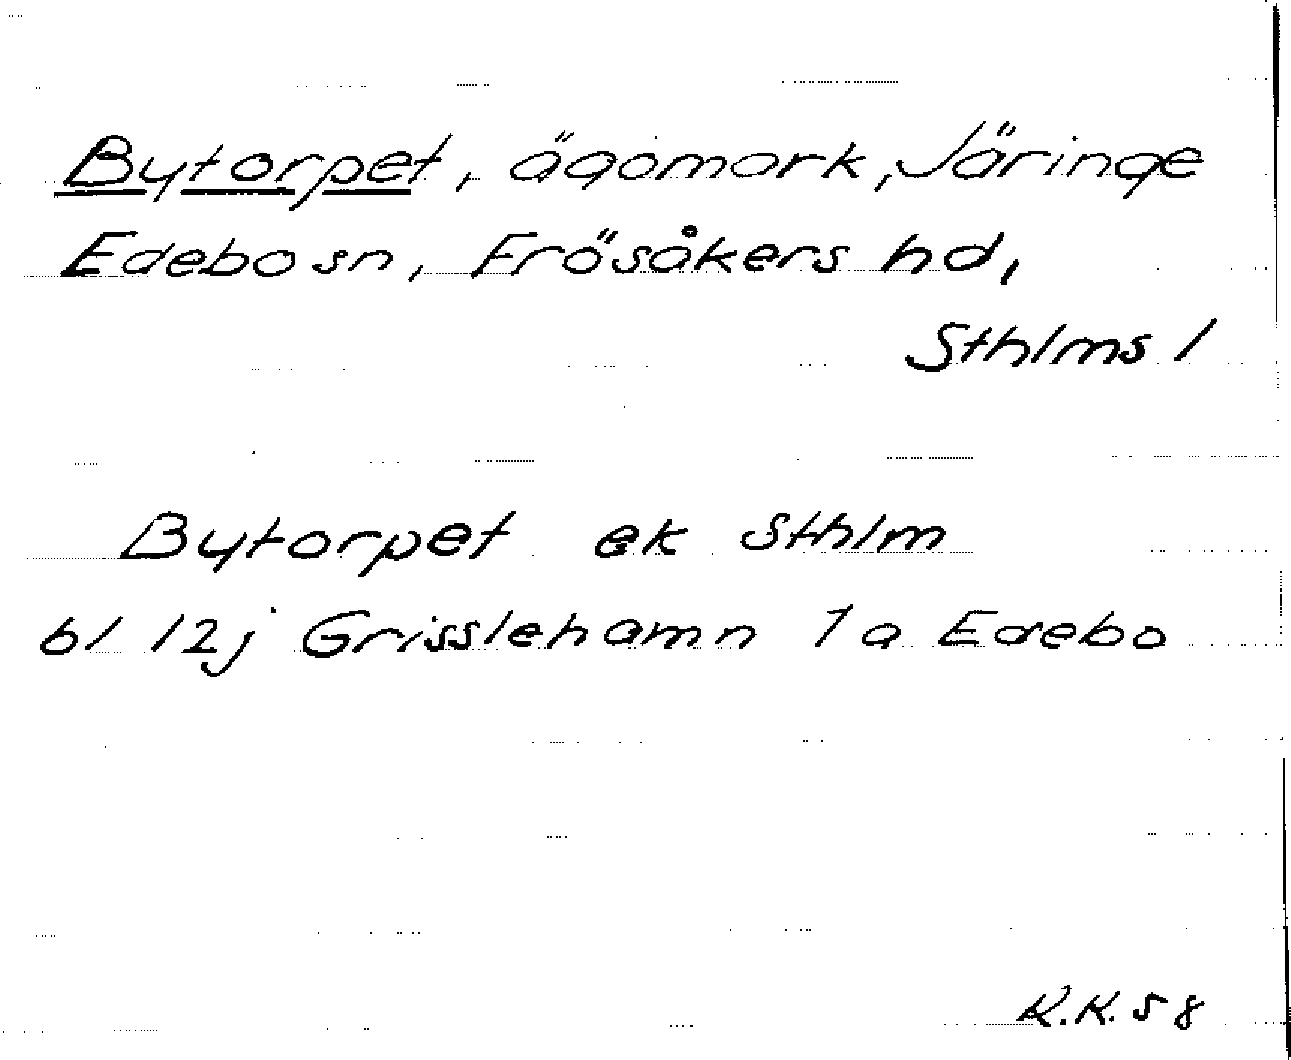 Bytorpet, ägomark, Järinge
Edebo sn, Frösåkers hd,
Sthlms l
Bytorpet ek Sthlm
bl 12j Grisslehamn 1a Edebo
K.K. 58